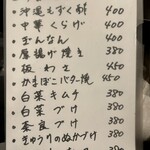 沖縄もずく酢 400
中華くらげ 400
ぎんなん 400
厚揚げ焼き 380
板わさ 450
かまぼこバター焼 450
白菜キムチ 380
白菜づけ 380
奈良づけ 380
きゅうりのぬかづけ 380